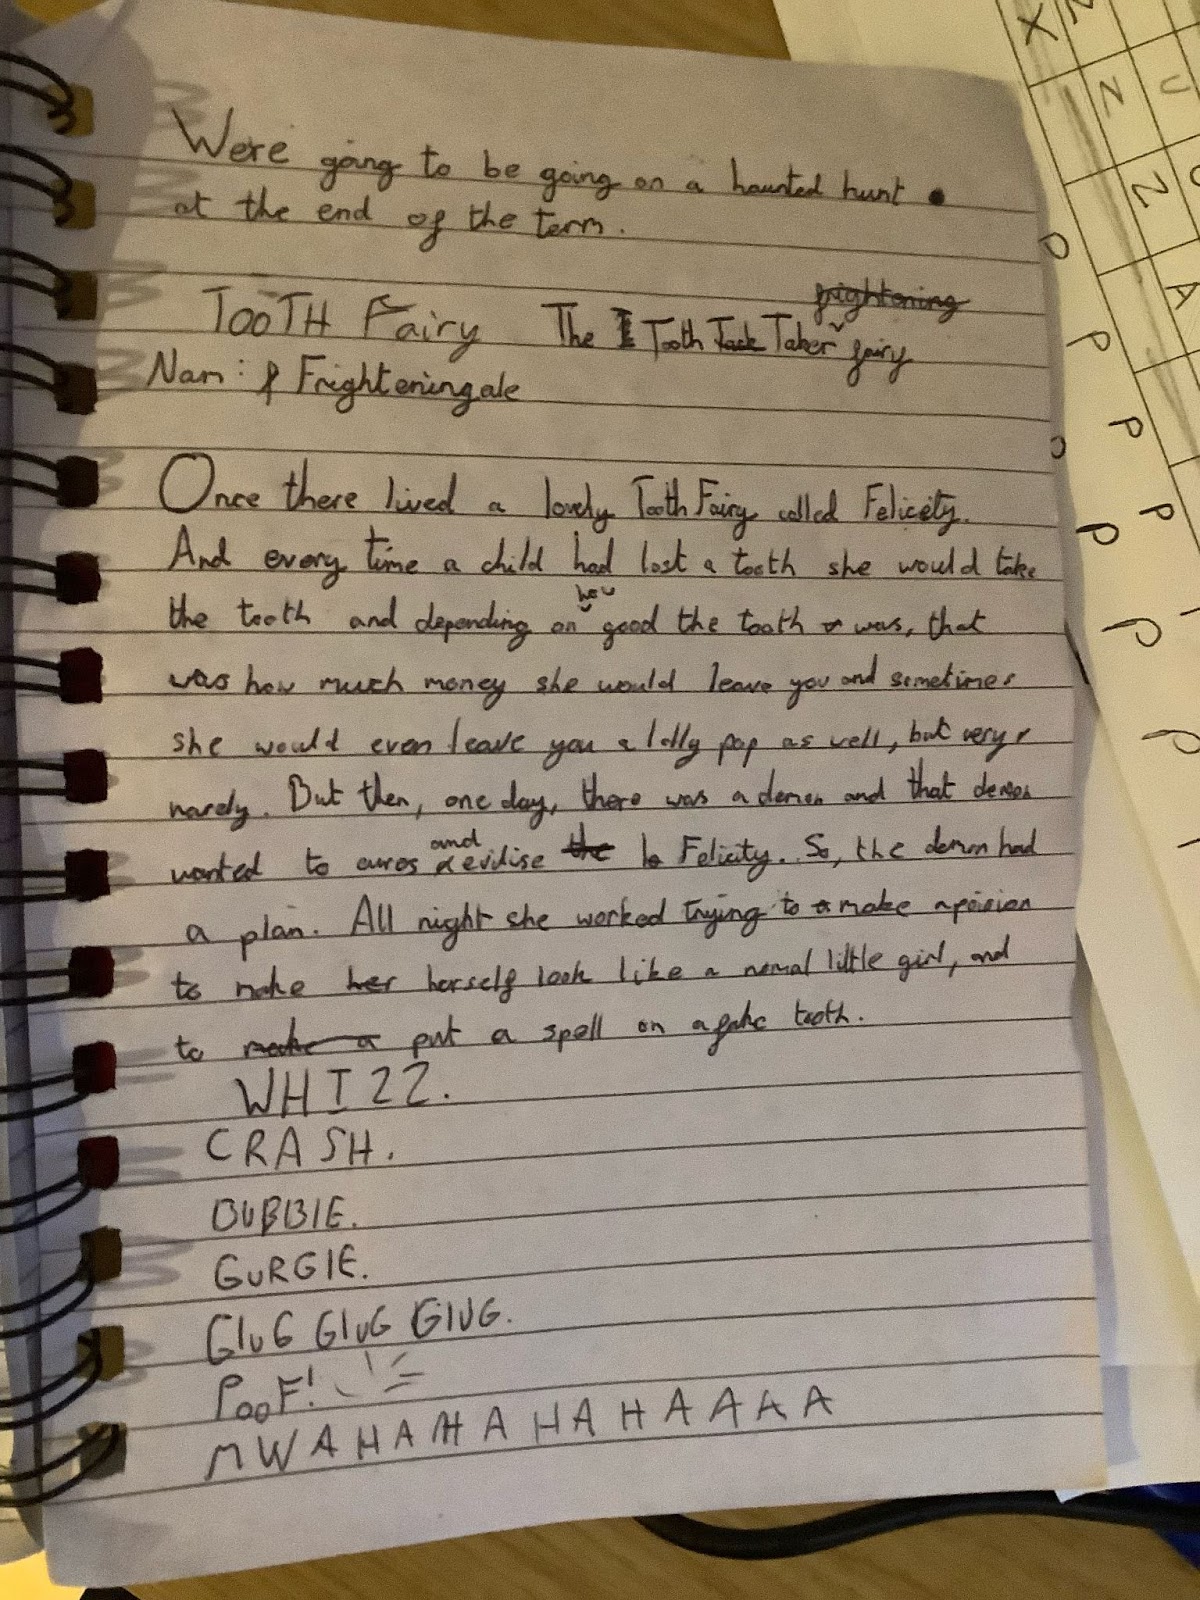 Were going to be going on a haunted hunt
at the end of the term.
TOOTH Fairy The Tooth Tack Taker frightening fairy
Nam: Frighteningale
Once there lived a lovely Tooth Fairy called Felicity.
And every time a child had lost a tooth she would take
the tooth and depending on how good the tooth was, that
was how much money she would leave you and sometimes
she would even leave you a lolly pop as well, but very
rarely. But then, one day, there was a demon and that demon
wanted to cures and evilise the Felicity. So, the demon had
a plan. All night she worked trying to make a poision
to make her herself look like a nomal little girl, and
to make a put a spell on a fake tooth.
WHIZZ.
CRASH.
BUBBlE.
GURGlE.
GlUG GlUG GlUG.
POOF!
MWAHAHAHAHAAAA
X
N
N U
Z
A
P
P
P
P
P
P
P